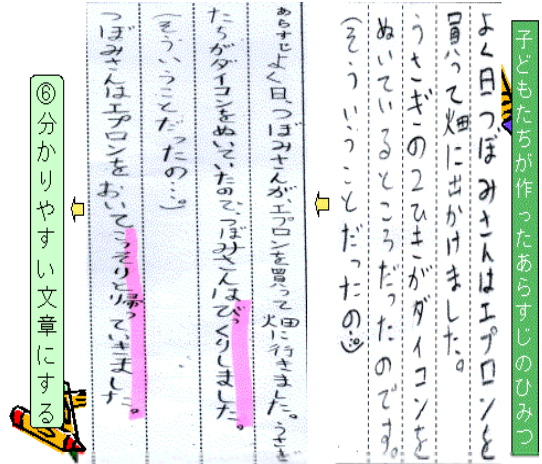 子どもたちが作ったあらすじのひみつ
よく日つぼみさんはエプロンを
買って畑に出かけました。
うさぎの2ひきがダイコンを
ぬいているところだったのです。
(そういうことだったの…。)
あらすじよく日、つぼみさんが、エプロンを買って畑に行きました。うさぎ
たちがダイコンをぬいていたので、つぼみさんはびっくりしました。
(そういうことだったの…。)
つぼみさんはエプロンをおいてこっそりと帰っていきました。
⑥分かりやすい文章にする